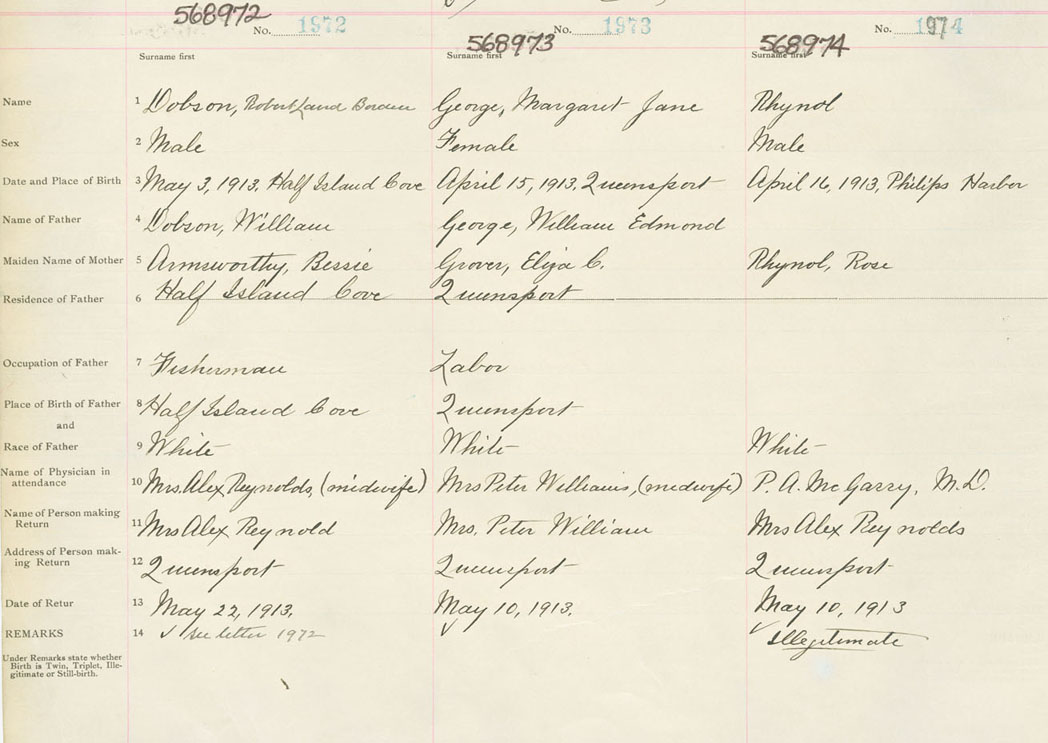 568972 No. 1972 568973 No. 1973 568974 No. 1974
Surname first Surname first Surname first
Name 1 Dobson, Robert Laud Borden George, Margaret Jane Rhynol
Sex 2 Male Female Male
Date and Place of Birth 3 May 3, 1913, Half Island Cove April 15, 1913, Queensport April 16, 1913, Philips Harbor
Name of Father 4 Dobson, William George, William Edmond
Maiden Name of Mother 5 Armsworthy, Bessie Grover, Eliza C. Rhynol, Rose
Residence of Father 6 Half Island Cove Queensport
Occupation of Father 7 Fisherman Labor
Place of Birth of Father 8 Half Island Cove Queensport
and
Race of Father 9 White White White
Name of Physician in
attendance 10 Mrs. Alex Reynolds, (midwife) Mrs Peter Williams, (midwife) P. A. McGarry, M.D.
Name of Person making
Return 11 Mrs Alex Reynold Mrs, Peter William Mrs Alex Reynolds
Address of Person mak-
ing Return 12 Queensport Queensport Queensport
Date of Retur 13 May 22, 1913. May 10, 1913. May 10, 1913
REMARKS 14 ✓ see letter 1972 ✓ ✓ Illegitimate
Under Remarks state whether
Birth is Twin, Triplet, Ille-
gitimate or Still-birth.